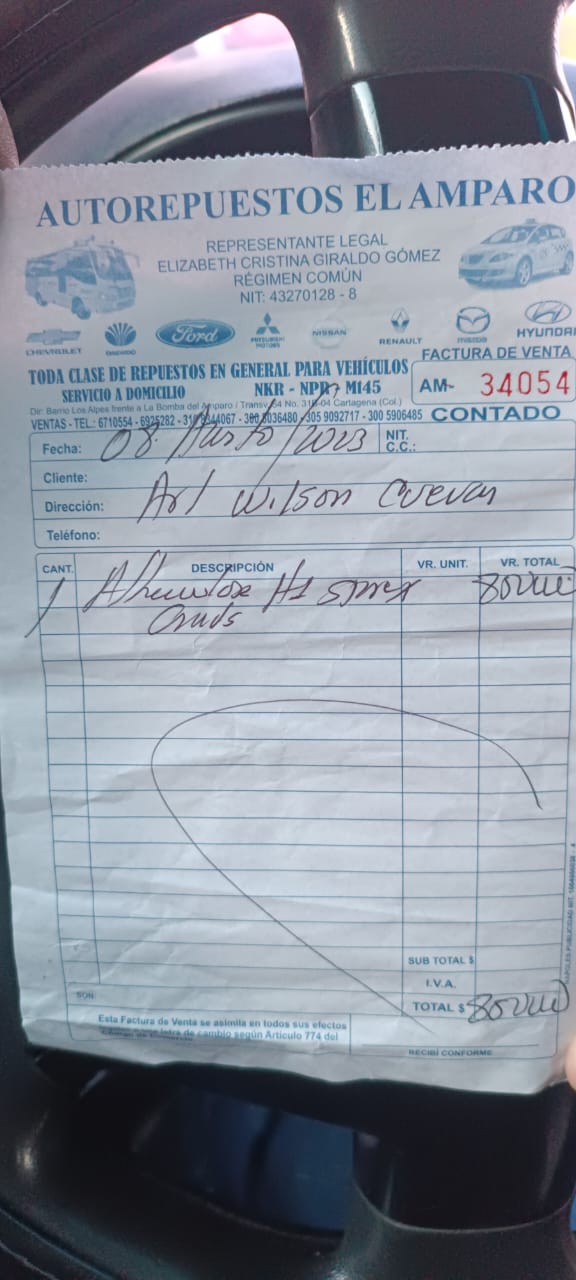 AUTOREPUESTOS EL AMPARO
REPRESENTANTE LEGAL
ELIZABETH CRISTINA GIRALDO GÓMEZ
RÉGIMEN COMÚN
NIT: 43270128 - 8
CHEVROLET DAEWOO Ford MITSUBISHI MOTORS NISSAN RENAULT mazda HYUNDAI
TODA CLASE DE REPUESTOS EN GENERAL PARA VEHÍCULOS
SERVICIO A DOMICILIO NKR - NPR - MI45
FACTURA DE VENTA
AM- 34054
Dir: Barrio Los Alpes frente a La Bomba del Amparo / Transv. 54 No. 31 -04 Cartagena (Col.)
VENTAS - TEL.: 6710554 - 305 9092717 - 300 5906485 CONTADO
Fecha: 08 /2023 NIT. C.C.:
Cliente:
Dirección: Wilson Cuevas
Teléfono:
CANT. DESCRIPCIÓN VR. UNIT. VR. TOTAL
1 H1
SUB TOTAL $
I.V.A.
SON:
TOTAL $
Esta Factura de Venta se asimila en todos sus efectos
letra de cambio según Artículo 774 del
RECIBÍ CONFORME